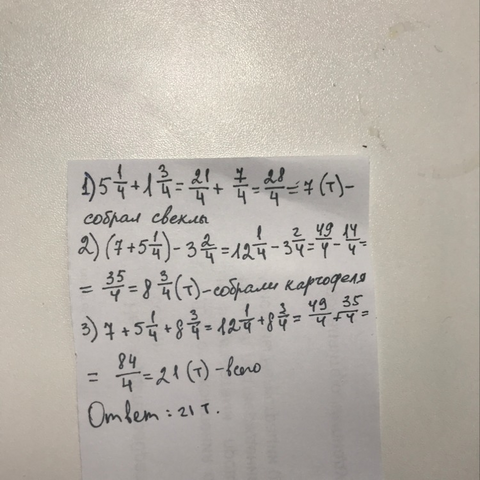 1) 5 1/4 + 1 3/4 = 21/4 + 7/4 = 28/4 = 7 (т) -
собрал свеклы
2) (7 + 5 1/4) - 3 2/4 = 12 1/4 - 3 2/4 = 49/4 - 14/4 =
= 35/4 = 8 3/4 (т) - собрали картофеля
3) 7 + 5 1/4 + 8 3/4 = 12 1/4 + 8 3/4 = 49/4 + 35/4 =
= 84/4 = 21 (т) - всего
Ответ: 21 т.